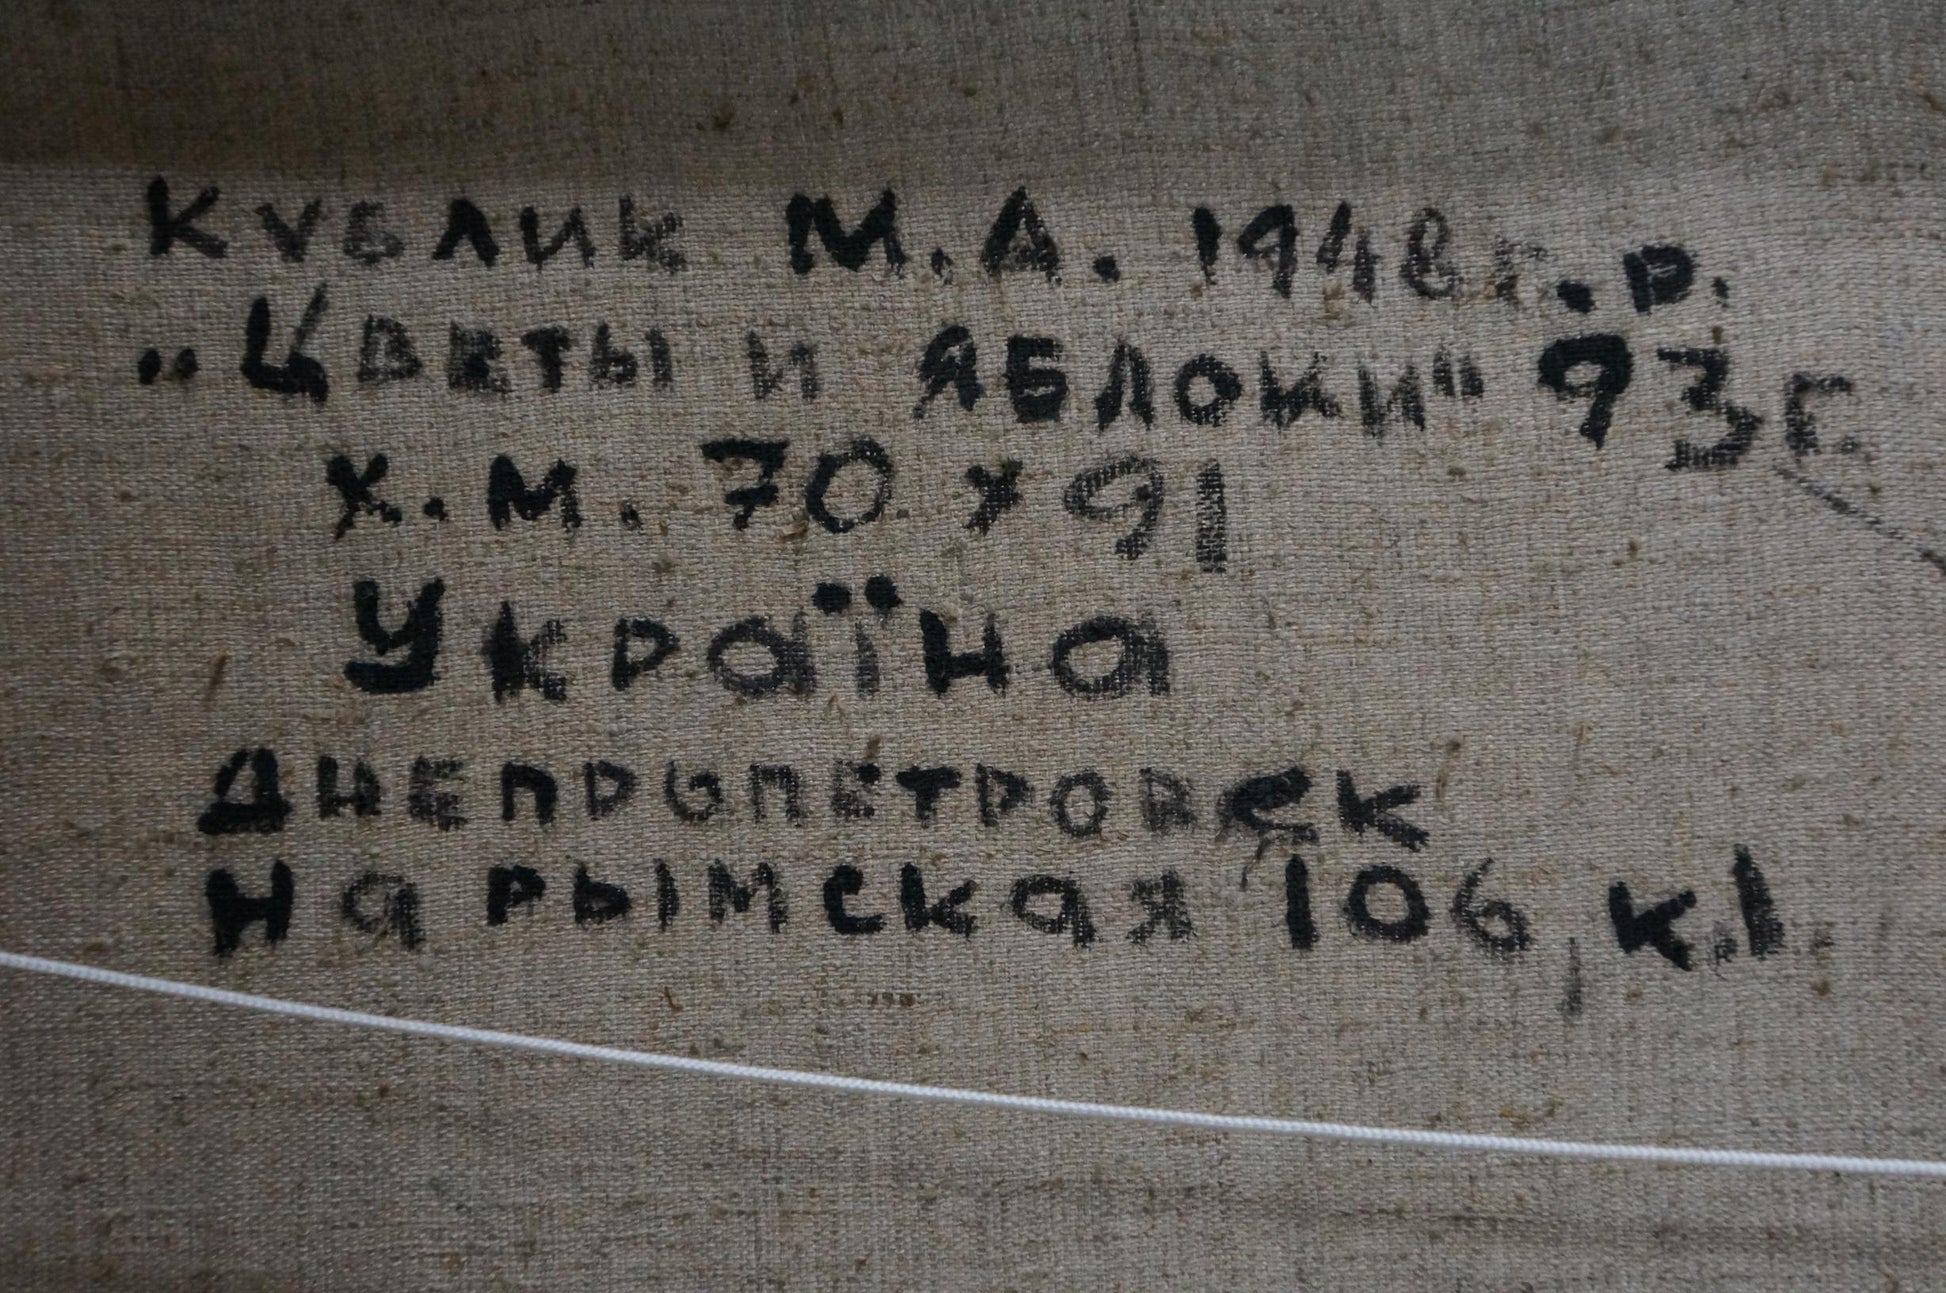 Кублик М.А. 1948г.р.
„Цветы и яблоки" 93г.
х.м. 70х91
Україна
Днепропетровск
Нарымская 106, к.1.